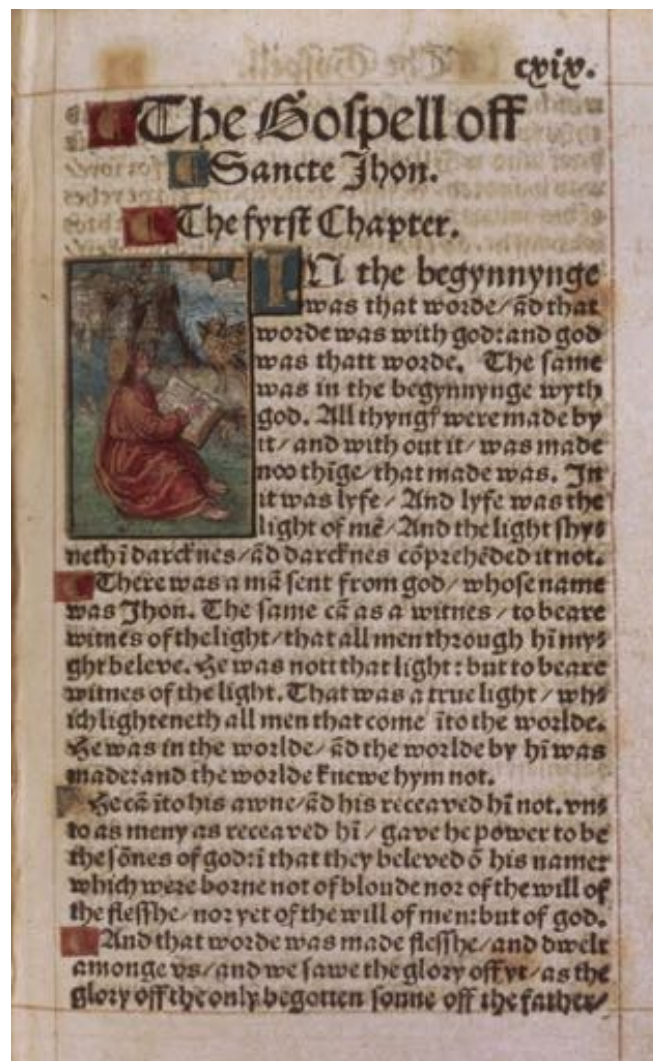 cxix.
The Gospell off
Sancte Jhon.
The fyrst Chapter.
IN the begynnynge
was that worde/ ād that
worde was with god: and god
was thatt worde. The same
was in the begynnynge wyth
god. All thyngſ were made by
it/ and with out it/ was made
noo thīge/ that made was. In
it was lyfe/ And lyfe was the
light of mē/ And the light shy⸗
neth ī darcknes/ ād darcknes cōprehēded it not.
There was a mā sent from god/ whose name
was Jhon. The same cā as a witnes/ to beare
witnes of the light/ that all men through hī my⸗
ght beleve. He was nott that light: but to beare
witnes of the light. That was a true light/ whi⸗
ich lighteneth all men that come īto the worlde.
He was in the worlde/ ād the worlde by hī was
made: and the worlde knewe hym not.
He cā īto his awne/ ād his receaved hī not. vn⸗
to as meny as receaved hī/ gave he power to be
the sōnes of god: ī that they beleved ō his name:
which were borne not of bloude nor of the will of
the flesshe/ nor yet of the will of men: but of god.
And that worde was made flesshe/ and dwelt
amonge vs/ and we sawe the glory off yt/ as the
glory off the only begotten sonne off the father/